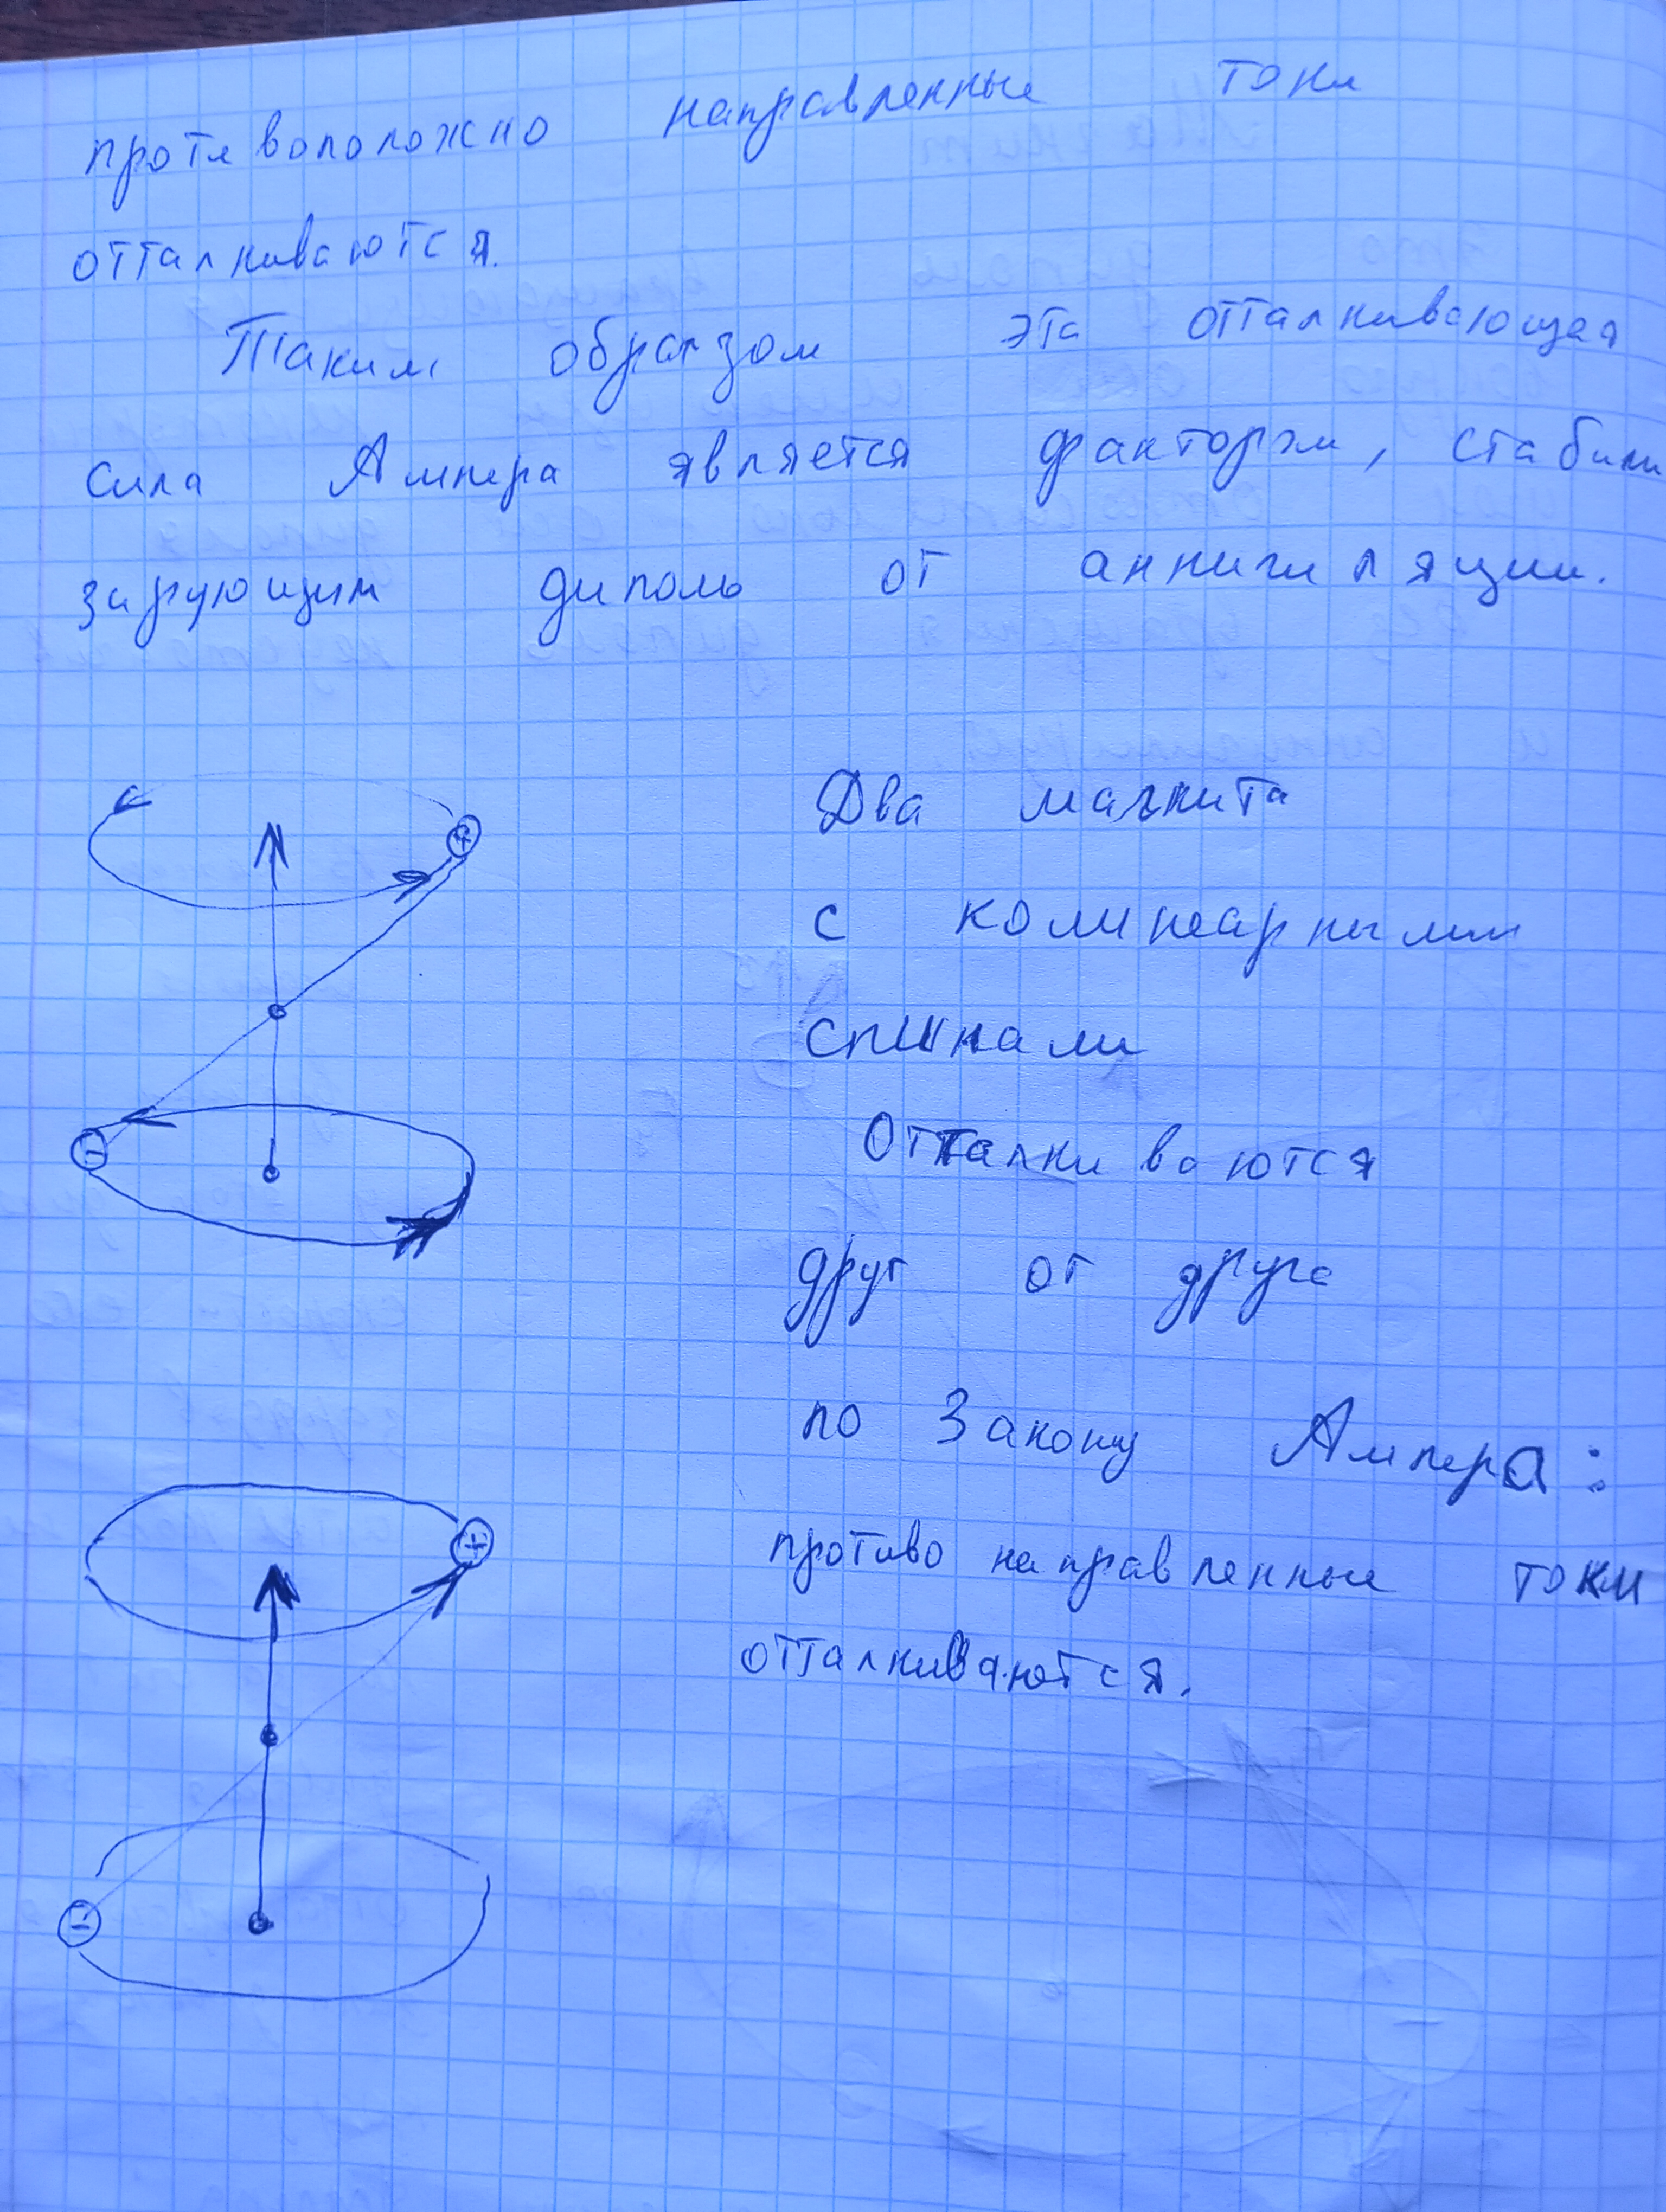 противоположно направленные токи
отталкиваются.
Таким образом эта отталкивающая
сила Ампера является фактором, стабили
зирующим диполь от аннигиляции.
Два магнита
+
с колинеарными
спинами
Отталкиваются
-
друг от друга
по Закону Ампера:
+
противо направленные токи
отталкиваются.
-